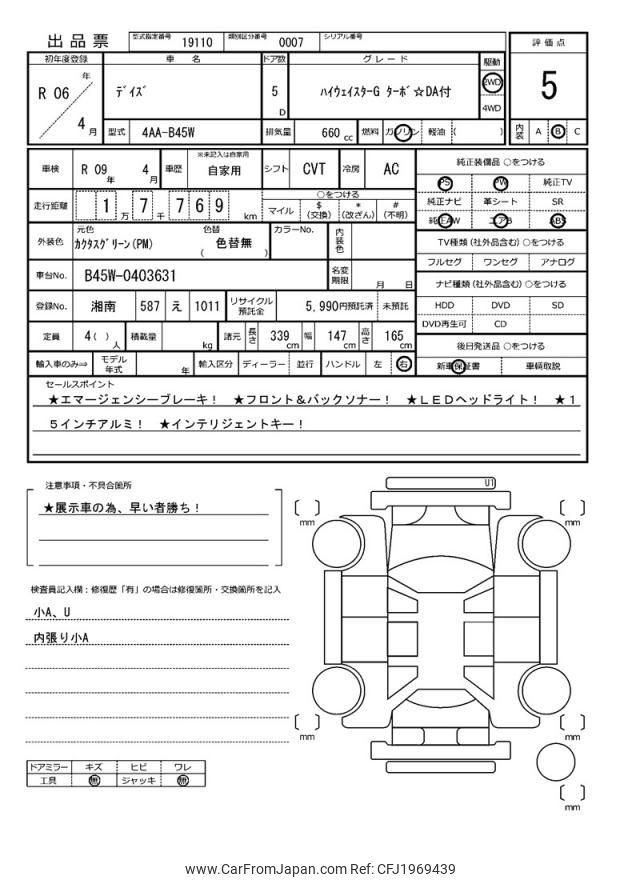 出品票 型式指定番号 19110 類別区分番号 0007 シリアル番号
評価点
5
内装 A B C
初年度登録 車名 ドア数 グレード 駆動
R 06 年 4 月
デイズ 5 D ハイウェイスターG ターボ☆DA付 2WD 4WD
型式 4AA-B45W 排気量 660 cc 燃料 ガソリン 軽油 ( )
車検 R 09 年 4 月 車歴 ※未記入は自家用 自家用 シフト CVT 冷房 AC
走行距離 1 万 7 千 7 6 9 km ○をつける
マイル $ (交換) * (改ざん) # (不明)
外装色 元色 カクタスグリーン(PM) 色替 ( 色替無 ) カラーNo. 内装色
車台No. B45W-0403631 名変期限 月 日
登録No. 湘南 587 え 1011 リサイクル預託金 5,990円預託済 未預託
定員 4( ) 人 積載量 kg 諸元 長さ 339 cm 幅 147 cm 高さ 165 cm
輸入車のみ⇒ モデル年式 年 輸入区分 ディーラー 並行 ハンドル 左 右
純正装備品 ○をつける
PS PW 純正TV
純正ナビ 革シート SR
純正AW エアB ABS
TV種類(社外品含む)○をつける
フルセグ ワンセグ アナログ
ナビ種類(社外品含む)○をつける
HDD DVD SD
DVD再生可 CD
後日発送品 ○をつける
新車保証書 車輌取説
セールスポイント
★エマージェンシーブレーキ! ★フロント&バックソナー! ★LEDヘッドライト! ★1
5インチアルミ! ★インテリジェントキー!
注意事項・不具合箇所
★展示車の為、早い者勝ち!
検査員記入欄:修復歴「有」の場合は修復箇所・交換箇所を記入
小A、U
内張り小A
ドアミラー キズ ヒビ ワレ
工具 無 ジャッキ 無
U1
mm
mm
mm
mm
mm
www.CarFromJapan.com Ref: CFJ1969439